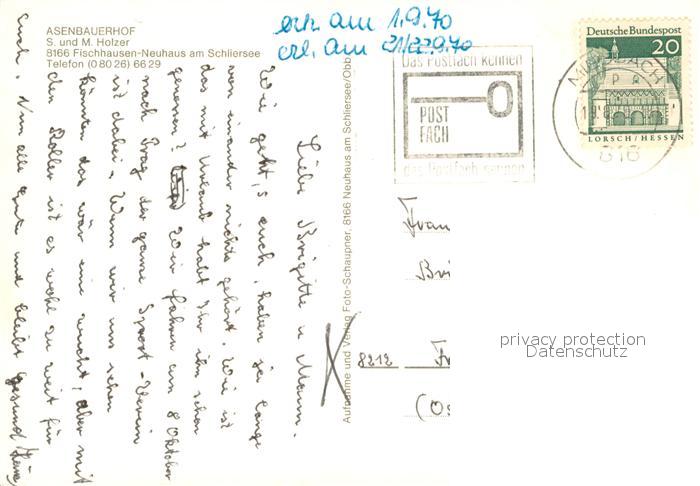 ASENBAUERHOF
S. und M. Holzer
8166 Fischhausen-Neuhaus am Schliersee
Telefon (0 80 26) 66 29
erh. am 1.9.70
erl. am 21/22.9.70
Das Postfach kennen
POST
FACH
das Postfach nennen
Deutsche Bundespost
20
LORSCH/HESSEN
816
Aufnahme und Verlag Foto-Schaupner, 8166 Neuhaus am Schliersee/Obb
Liebe Brigitte u Mann.
Wie geht,s euch, haben ja lange
von einander nichts gehört. Wie ist
das mit Urlaub habt Ihr ihn schon
genossen? Wir fahren am 8 Oktober
nach Prag der ganze Sport-Verein
ist dabei. Wenn wir uns sehen
könnten das wär eine wucht, aber mit
den Roller ist es wohl zu weit für
Euch. Nun alle gute und bleibt gesund
Frau
Bri
8212
(Os
privacy protection
Datenschutz